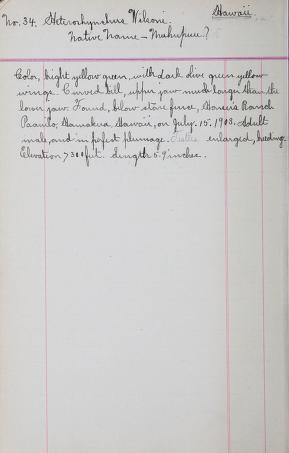 Hawaii.
No. 34. Heterorhynchus Wilsoni.
Native Name - Nukupuu?
Color, bright yellow green, with dark olive green yellow
wings. Curved bill, upper jaw much longer than the
lower jaw. Found, below stone fence, Horner's Ranch
Paauilo, Hamakua, Hawaii, on July. 15. 1903. Adult
male, and in perfect plumage. enlarged, breeding.
Elevation > 300 feet. Length 5.9 inches.